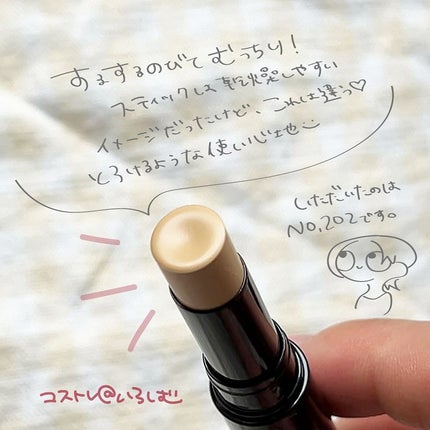 するするのびて むっちり!
スティックは乾燥しやすい
イメージだったけど、これは違う♡
とろけるような使い心地
いただいたのは
No,202です。
コストレ@いろしむ